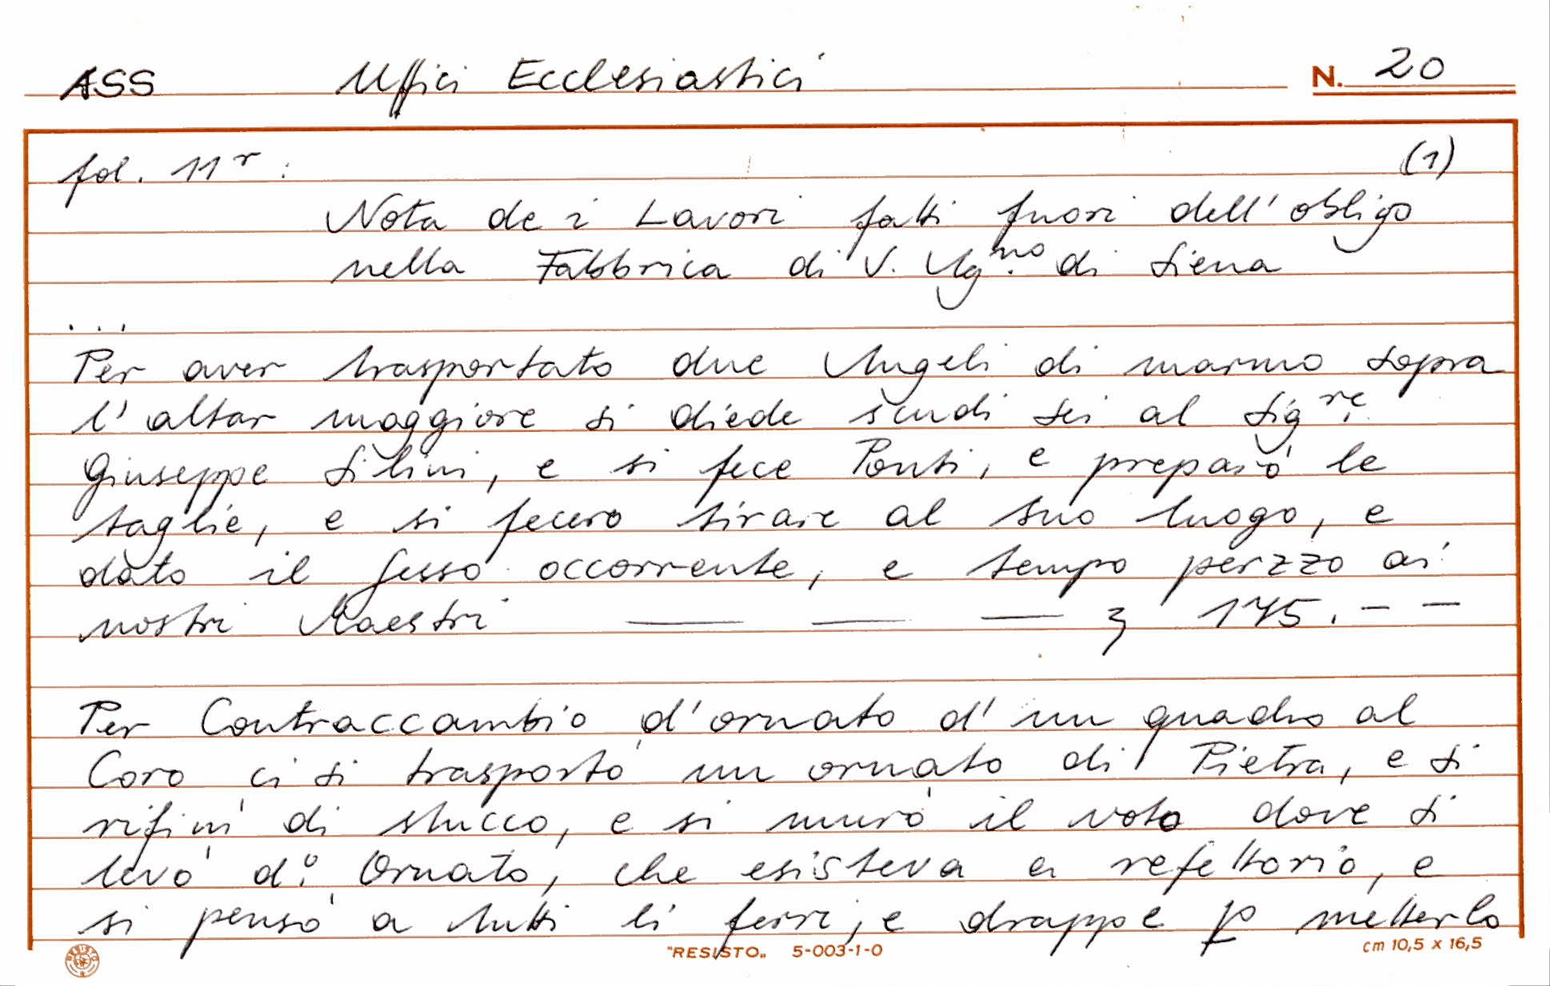 ASS Uffici Ecclesiastici N. 20
fol. 11r : (1)
Nota de i Lavori fatti fuori dell'obligo
nella Fabbrica di V. Vig.no di Siena
...
Per aver trasportato due Angeli di marmo sopra
l'altar maggiore si diede scudi sei al Sig.re
Giuseppe Silini, e si fece Ponti, e preparò le
taglie, e si fecero tirare al suo luogo, e
dato il gesso occorrente, e tempo perzzo ai
nostri Maestri — — — 175. – –
Per Contraccambio d'ornato d'un quadro al
Coro ci si trasportò un ornato di Pietra, e si
rifinì di stucco, e si murò il voto dove si
levò d.o Ornato, che esisteva a refettorio, e
si pensò a tutti li ferri, e drappe p metterlo
"RESISTO„ 5-003-1-0 cm 10,5 x 16,5